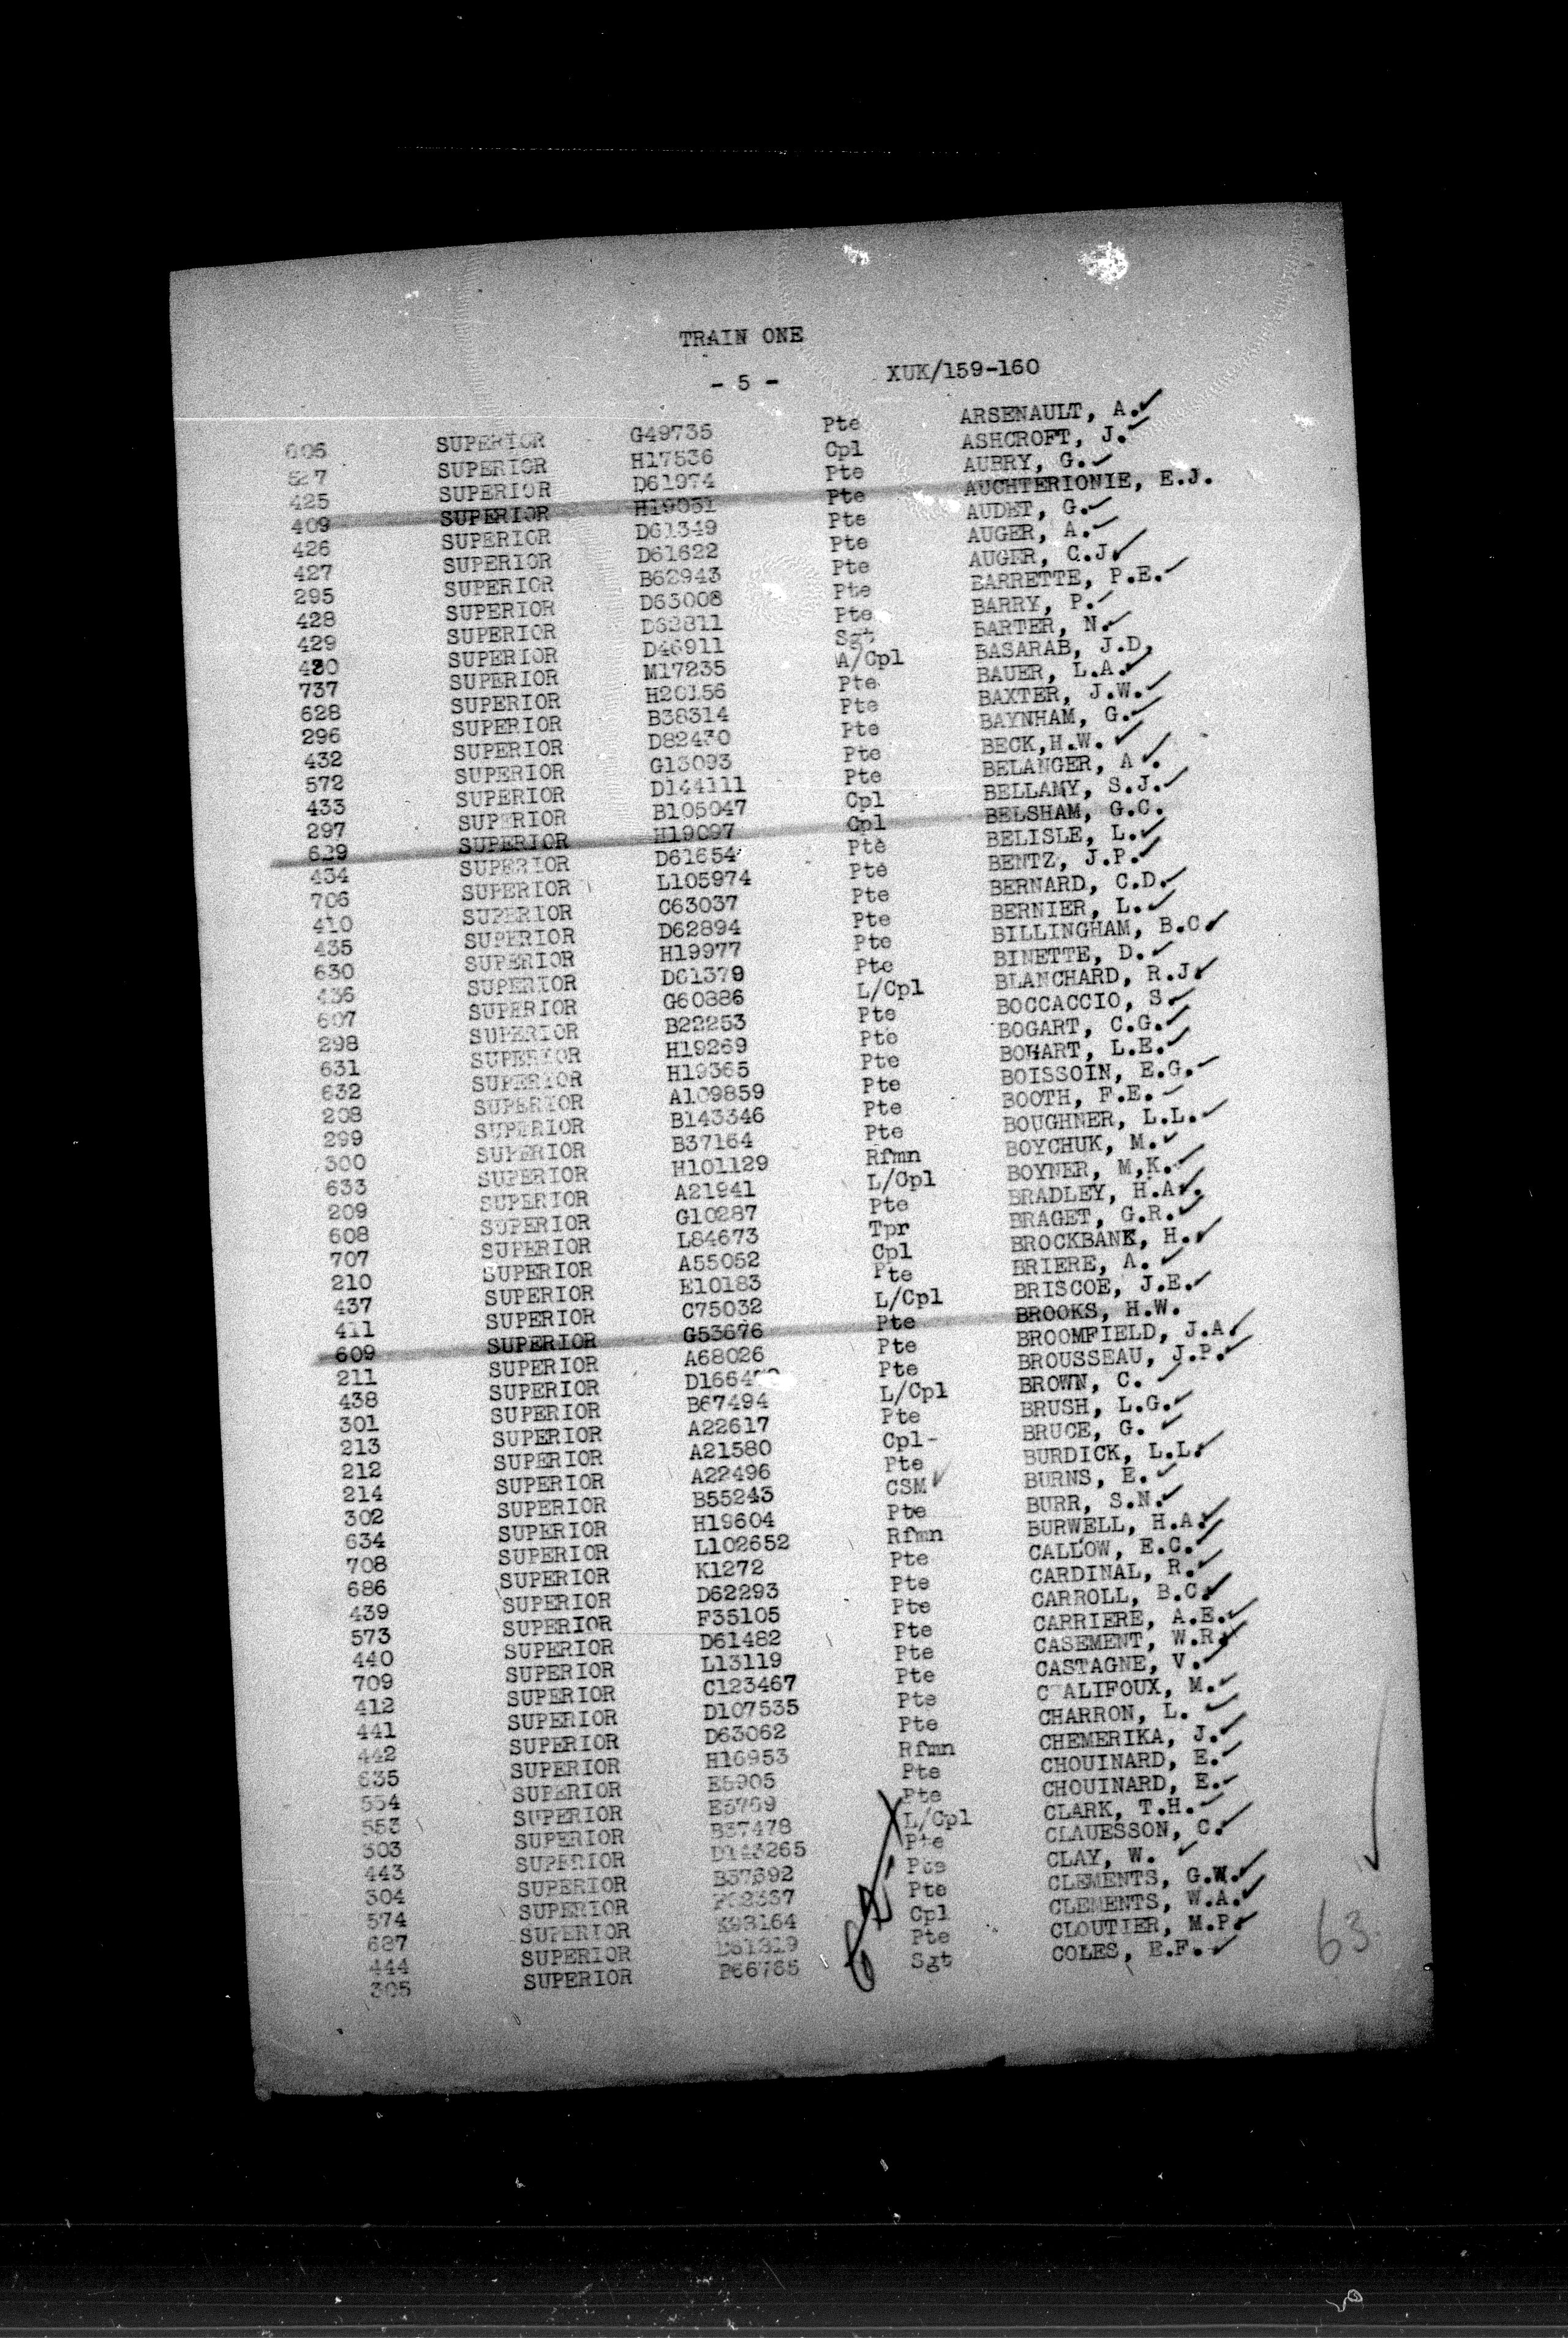 TRAIN ONE
- 5 - XUK/159-160
606 SUPERIOR G49735 Pte ARSENAULT, A.✓
527 SUPERIOR H17536 Cpl ASHCROFT, J.✓
425 SUPERIOR D61974 Pte AUBRY, G.✓
409 SUPERIOR H19051 Pte AUCHTERIONIE, E.J.
426 SUPERIOR D61349 Pte AUDET, G.✓
427 SUPERIOR D61622 Pte AUGER, A.✓
295 SUPERIOR B62943 Pte AUGER, C.J✓
428 SUPERIOR D63008 Pte BARRETTE, P.E.✓
429 SUPERIOR D62811 Pte BARRY, P.✓
430 SUPERIOR D46911 Sgt BARTER, N.✓
737 SUPERIOR M17235 A/Cpl BASARAB, J.D.
628 SUPERIOR H20156 Pte BAUER, L.A.✓
296 SUPERIOR B38314 Pte BAXTER, J.W.✓
432 SUPERIOR D82430 Pte BAYNHAM, G.✓
572 SUPERIOR G13093 Pte BECK,H.W. ✓
433 SUPERIOR D144111 Pte BELANGER, A ✓.
297 SUPERIOR B105047 Cpl BELLAMY, S.J.✓
629 SUPERIOR H19097 Cpl BELSHAM, G.C.
434 SUPERIOR D61654 Pte BELISLE, L.✓
706 SUPERIOR L105974 Pte BENTZ, J.P.✓
410 SUPERIOR C63037 Pte BERNARD, C.D.✓
435 SUPERIOR D62894 Pte BERNIER, L.✓
630 SUPERIOR H19977 Pte BILLINGHAM, B.C✓
436 SUPERIOR D61379 Pte BINETTE, D.✓
607 SUPERIOR G60886 L/Cpl BLANCHARD, R.J✓
298 SUPERIOR B22253 Pte BOCCACCIO, S✓
631 SUPERIOR H19269 Pte BOGART, C.G.✓
632 SUPERIOR H19365 Pte BOHART, L.E.✓
208 SUPERIOR A109859 Pte BOISSOIN, E.G.✓
299 SUPERIOR B143346 Pte BOOTH, F.E. ✓
300 SUPERIOR B37164 Pte BOUGHNER, L.L.✓
633 SUPERIOR H101129 Rfmn BOYCHUK, M.✓
209 SUPERIOR A21941 L/Cpl BOYNER, M.K.✓
608 SUPERIOR G10287 Pte BRADLEY, H.A✓.
707 SUPERIOR L84673 Tpr BRAGET, G.R.✓
210 SUPERIOR A55052 Cpl BROCKBANK, H.✓
437 SUPERIOR E10183 Pte BRIERE, A. ✓
411 SUPERIOR C75032 L/Cpl BRISCOE, J.E.✓
609 SUPERIOR G53676 Pte BROOKS, H.W.
211 SUPERIOR A68026 Pte BROOMFIELD, J.A✓
438 SUPERIOR Pte BROUSSEAU, J.P.✓
301 SUPERIOR B67494 L/Cpl BROWN, C. ✓
213 SUPERIOR A22617 Pte BRUSH, L.G.✓
212 SUPERIOR A21580 Cpl- BRUCE, G. ✓
214 SUPERIOR A22496 Pte BURDICK, L.L✓
302 SUPERIOR B55243 CSM ✓ BURNS, E. ✓
634 SUPERIOR H19604 Pte BURR, S.N.✓
708 SUPERIOR L102652 Rfmn BURWELL, H.A✓
686 SUPERIOR K1272 Pte CALLOW, E.C.✓
439 SUPERIOR D62293 Pte CARDINAL, R.✓
573 SUPERIOR F35105 Pte CARROLL, B.C✓
440 SUPERIOR D61482 Pte CARRIERE, A.E.✓
709 SUPERIOR L13119 Pte CASEMENT, W.R✓
412 SUPERIOR C123467 Pte CASTAGNE, V.✓
441 SUPERIOR D107535 Pte C ALIFOUX, M.✓
442 SUPERIOR D63062 Pte CHARRON, L. ✓
635 SUPERIOR H16953 Rfmn CHEMERIKA, J.✓
554 SUPERIOR E5905 Pte CHOUINARD, E.✓
553 SUPERIOR E5769 Pte CHOUINARD, E.✓
303 SUPERIOR B37478 L/Cpl CLARK, T.H.✓
443 SUPERIOR D143265 Pte CLAUESSON, C.✓
304 SUPERIOR B37392 Pte CLAY, W. ✓
574 SUPERIOR Pte CLEMENTS, G.W.✓
687 SUPERIOR K98164 Cpl CLEMENTS, W.A.✓
444 SUPERIOR Pte CLOUTIER, M.P✓
305 SUPERIOR B66765 Sgt COLES, E.F.✓
63